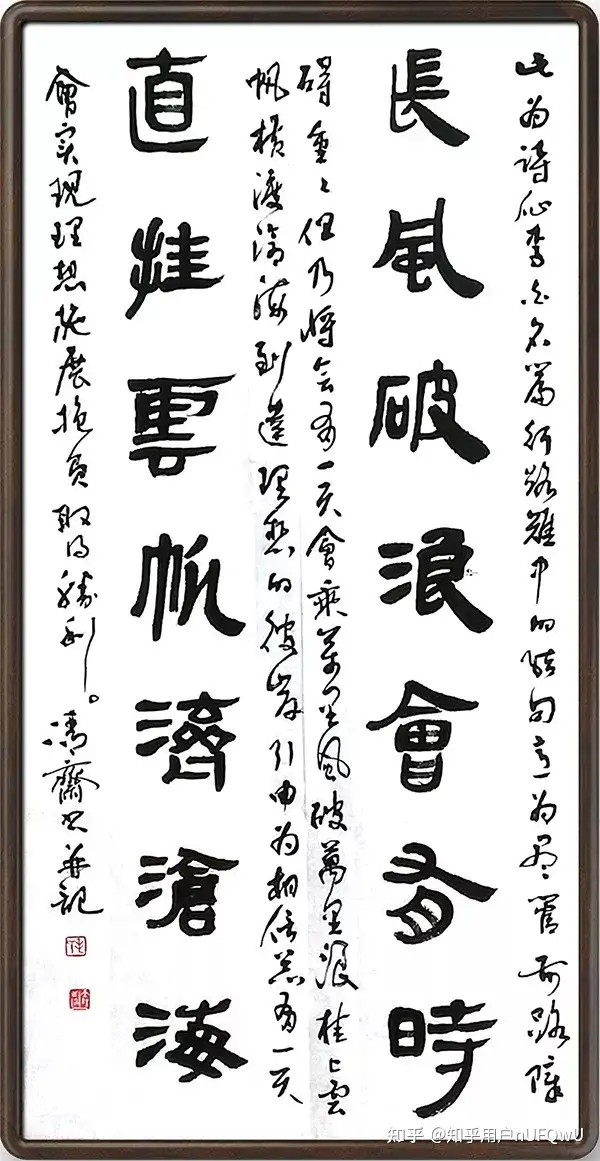 此为詩仙李白名篇行路難中的结句意为尽管前路障
長風破浪會有時
碍重重但乃将会有一天會乘万里風破萬里浪挂上雲
帆横渡滄海到達理想的彼岸引申为相信总有一天
直挂雲帆濟滄海
會实现理想施展抱負取得勝利。馮齋书并記
知乎 @知乎用户nUEQwU